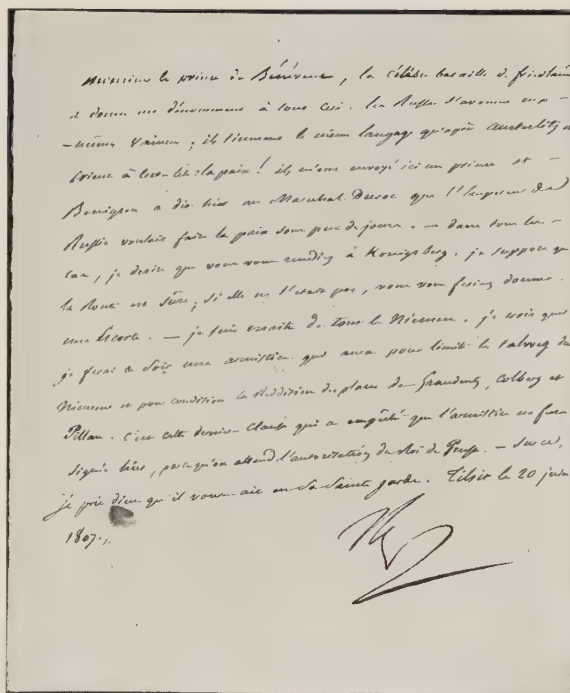 Monsieur le prince de Bénévent, la célèbre bataille de friedland
a donné un dénouement à tout ceci. les Russes s'avouent eux-
-mêmes vaincus; ils tiennent le même langage qu'après Austerlitz et
crient à tue-tête: la paix! ils m'ont envoyé ici un prince et -
Bennigsen a dit hier au Maréchal Duroc que l'Empereur de
Russie voulait faire la paix sous peu de jours. - dans tous les
cas, je désire que vous vous rendiez à Konigsberg. je suppose que
la route est sûre; si elle ne l'était pas, vous vous feriez donner
une escorte. - je suis maître de tout le Niemen. je crois que
je ferai ce soir une armistice qui aura pour limite le talweg du
Niemen et pour condition la reddition des places de Graudentz, Colberg et
Pillau. c'est cette dernière clause qui a empêché que l'armistice ne fut
signée hier, parce qu'on attend l'autorisation du Roi de Prusse. - sur ce,
je prie dieu qu'il vous ait en sa sainte garde. Tilsit le 20 juin
1807.